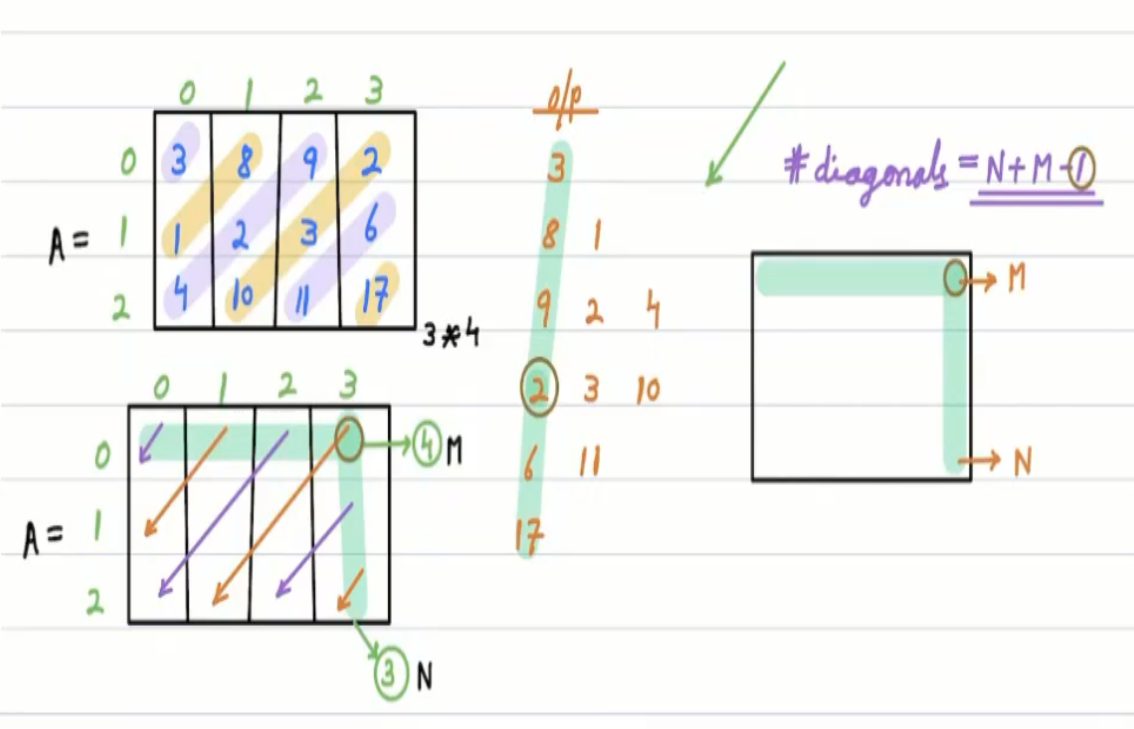 0 1 2 3
0 3 8 9 2
A = 1 1 2 3 6
2 4 10 11 17
3*4
0 1 2 3
0 → 4 M
A = 1
2
3 N
o/p
3
8 1
9 2 4
2 3 10
6 11
17
# diagonals = N+M-1
→ M
→ N